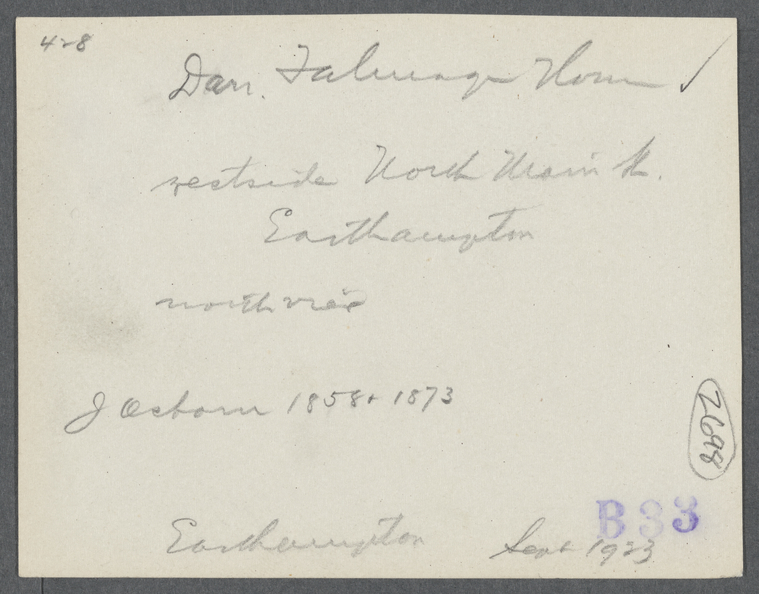 4-8
Dan. Talmage Home ✓
westside North Main St.
Easthampton
north view
J Osborn 1858 + 1873
2698
B33
Easthampton Sept 1923